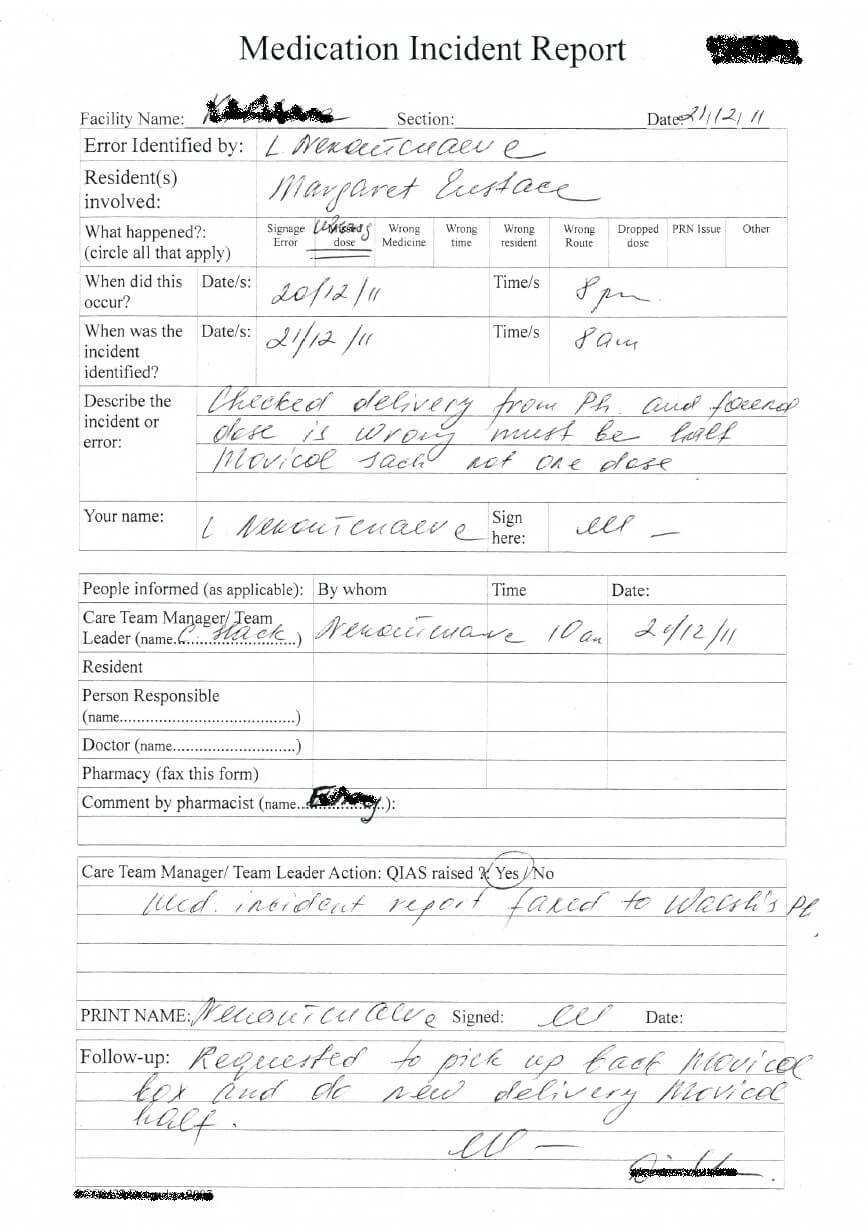 Medication Incident Report
Facility Name: Section: Date: 21/12/11
Error Identified by: L
Resident(s) involved: Margaret Eustace
What happened?: (circle all that apply) Signage Error dose Wrong Medicine Wrong time Wrong resident Wrong Route Dropped dose PRN Issue Other
When did this occur? Date/s: 20/12/11 Time/s 8pm.
When was the incident identified? Date/s: 21/12/11 Time/s 8am
Describe the incident or error: Checked delivery from Ph. and found
dose is wrong must be half
Movicol sach not one dose
Your name: L Sign here:
People informed (as applicable): By whom Time Date:
Care Team Manager/ Team
Leader (name C. Stack) 10am /12/11
Resident
Person Responsible
(name........................................)
Doctor (name............................)
Pharmacy (fax this form)
Comment by pharmacist (name..................):
Care Team Manager/ Team Leader Action: QIAS raised ? Yes / No
Med. incident report faxed to Walsh's Ph
PRINT NAME: Signed: Date:
Follow-up: Requested to pick up back Movicol
box and do new delivery Movicol
half.